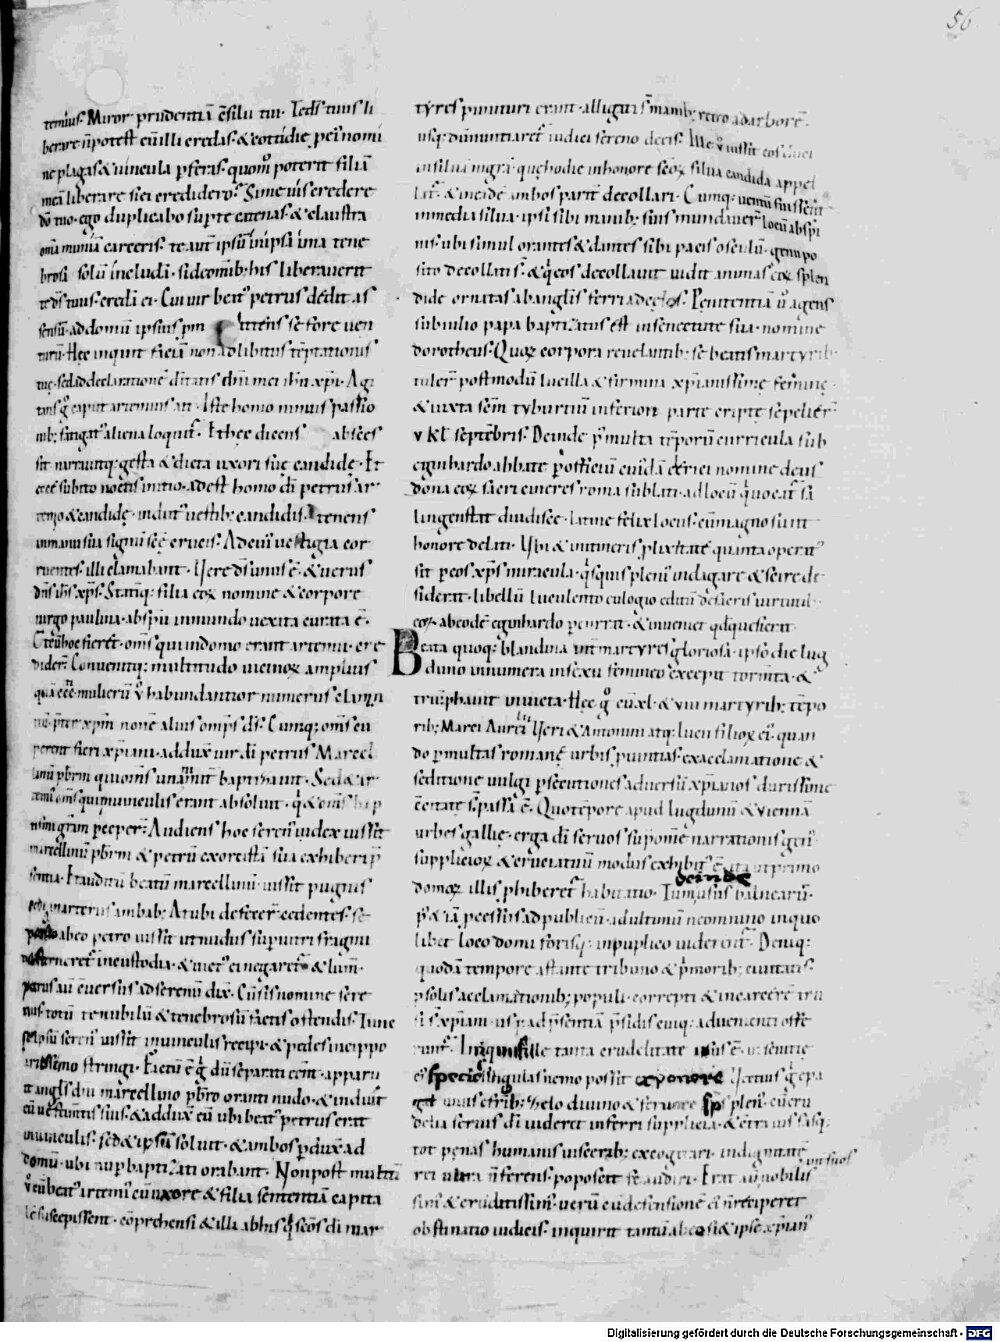 56
temius. Miror prudentiā ē silu tui. Ie dš tuus li
berare n̄ potest cū illi credas. & cotidie pei nomi
ne plagas & uincula pferas. quom̊ poterit filiā
meā liberare si ei credidero. Si me uis credere
dō tuo. ego duplicabo sup te catenas. & claustra
omīa muniā carceris. te aut̄ ipsū in ipsa ima tene
brosi solū includā. si de omīb; his liberauerit
te dš tuus. credā ei. Cui uir beatꝰ petrus dedit as
sensū. ad domū ipsius pm ittens se fore uen
turū. Hęc inquit faciā non ad libitus tēptationis
tuę. sed ad declarationē diītatis dnī mei ihū xp̄i. Agi
tans g̊ caput artemius ait. Iste homo nimiis passio
nib; fatigatꝰ aliena loquitꝰ. Et hęc dicens absces
sit narrauitq; gesta & dicta uxori suę candidę. Et
ecce subito noctis initio. adest homo dī petrus ar
temio & candidę. indutꝰ uestib; candidis. tenens
in manu sua signū scę crucis. Ad cuiꝰ uestigia cor
ruentes. illi clamabant. Uere dš unus ē. & uerus
dn̄s ihs xp̄s. Statimq; filia eoꝝ nomine & corpore
uirgo paulina. ab spū inmundo uexata curata ē.
Cū u̓ hoc fieret. om̄s qui in domo erant artemii. cre
diderꝰ. Conuenitq; multitudo uicinoꝝ amplius
quā ccc. mulierū u̓ habundantior numerus clamn
tiū. p̄ter xp̄m non ē alius omps dš. Cumq; om̄s cu
perent fieri xp̄iani. adduxꝰ uir dī petrus Marcel
linū pb̄rm qui om̄s unanimit baptizauit. Sed & ar
temiꝰ om̄s qui in uinculis erant absoluit. q̓ & om̄s bap
tismi gr̄am peeperꝰ. Audiens hoc serenꝰ iudex iussit
marcellinū pb̄rm & petrū exorcistā sua exhiberi p̄
sentia. Et auditū beatū marcellinū. iussit pugnis
cędi martirꝰ is ambab; At ubi deficerꝰ cedentes. se
posito ab eo petro iussit ut nudus sup uitri fragmi
na sterneretꝰ in custodia. & uictꝰ ei negaretꝰ & lum.
petrus aū euersus ad serenū dix̄. Cū sis nomine sere
nus. totū te nubilū & tenebrosū factis ostendis. Tunc
& ipsū serenꝰ iussit in uinculis recipi. & pedes in cippo
artissimo stringi. Factū ē g̊ dū separati ceent. apparu
it angls dni marcellino pbro oranti nudo. & induit
eū uestimtis suis. & adduxꝰ eū ubi beatꝰ petrus erat
in uinculis. sed & ipsū soluit. & ambos pduxꝰ ad
domū. ubi nup baptizati orabant. Non post multū
u̓ cū beatꝰ artemiꝰ cū uxore & filia sententiā capita
lē suscepissent. cōprehensi & illi abhis q̓ scōs dī mar
tyres punituri erant. alligati sꝰ manib; retro ad arborē.
usq; dū nuntiaretꝰ iudici sereno de eis. Ille u̓ iussit eos duci
in siluā nigrā. quę hodie in honore scōꝝ silua candida appel
latꝰ. & in ea dē ambos paritꝰ decollari. Cumq; uentū fuissent
in media silua. ipsi sibi manib; suis mundauerꝰ locū abspi
nis. ubi simul orantes & dantes sibi pacis osculū. genu po
sito decollati sꝰ. & q̓ eos decollauit uidit animas eoꝝ splen
dide ornatas ab anglis ferri ad cęlos. Penitentiā u̓ agens
sub iulio papa baptizatus est in senectute sua. nomine
dorotheus. Quoꝝ corpora reuelantib; se beatis martyrib;
tulerꝰ postmodū lucilla & firmina xp̄ianissimę feminę.
& iuxta scm̄ tyburtiū inferiori parte cripte sepelierꝰ
v kl septēbris. Deinde p̓ multa tēporū curricula sub
eginhardo abbate p officiū cuidā clerici nomine deus
dona eoꝝ sacri cineres roma sublati. ad locū q̓ uocatꝰ sā
lingenstat diuidisce. latine felix locus. cū magno sunt
honore delati. Ubi & in itineris plixitatē quanta operatꝰ
sit p eos xp̄s miracula. q̓squis pleniꝰ indagare & scire de
siderat. libellū luculento eulogio editū de sacris uirtutib;
eoꝝ. ab eodē eginhardo pcurrat. & inueniet qd̓ quęsierit.
Beata quoq; blandina intꝰ martyres gloriosā. ipso die lug
duno innumera in sexu femineo excepit tormta. &
triūphauit inuicta. Hęc g̊ cū xl & viii martyrib; tēpo
rib; Marci Aurelii Ueri & Antonini atq; lucii filioꝝ eiꝰ. quan
do p multas romanę urbis puintias. ex acclamatione &
seditione uulgi psecutiones aduersū xp̄ianos durissime
ēcitatę sꝰ. passa ē. Quo tēpore apud lugdunū & uiennā
urbes gallię. erga dī seruos sup om̄e narrationis genꝰ
supplicioꝝ & cruciatuū modus exhibitꝰ ē. ita ut primo
deinde
domoꝝ illis phiberetꝰ habitatio. Tum usus balnearū.
p̓ & iā pcessus ad publicū. ad ultimū ne omnino in quo
libet loco domi forisq; in puplico uiderentꝰ. Deniq;
quodā tempore astante tribuno & p̓morib; ciuitatis.
p solis acclamationib; populi. correpti & in carcerē tru
si sꝰ xp̄iani. usq; ad p̄sentiā p̄sidis. cuiq; aduenienti offe
runtꝰ. In quos ille tanta crudelitate usus ē. ut seuitię
eiꝰ species singulas nemo possit exponere. Uectius g̊ epa
gat unus ex frib; zelo diuino & feruore sp̄s plenꝰ. cū cru
delia seruis dī uideret inferri supplicia. & extra ius fasq;
tot penas humanis uiscerib; excogitari. indignitatē rei
rei ultra n̄ ferens. poposcit se audiri. Erat aū nobilis
simꝰ & eruditissimꝰ. uerū cū defensionē eiꝰ n̄ reciperet
obstinatio iudicis. inquirit tantū ab eo si & ipse xp̄ianꝰ
Digitalisierung gefördert durch die Deutsche Forschungsgemeinschaft - DFG